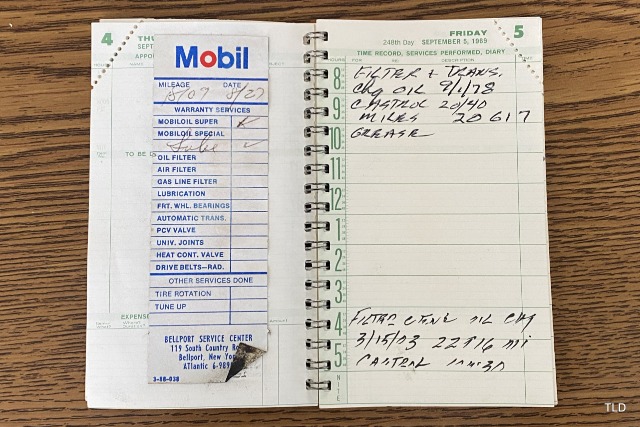 4 THU
SEPT
APPOI
TO BE D
EXPENS
Mobil
MILEAGE DATE
WARRANTY SERVICES
MOBILOIL SUPER
MOBILOIL SPECIAL
Lube ✓
OIL FILTER
AIR FILTER
GAS LINE FILTER
LUBRICATION
FRT. WHL. BEARINGS
AUTOMATIC TRANS.
PCV VALVE
UNIV. JOINTS
HEAT CONT. VALVE
DRIVE BELTS—RAD.
OTHER SERVICES DONE
TIRE ROTATION
TUNE UP
BELLPORT SERVICE CENTER
119 South Country Ro
Bellport, New Yor
Atlantic 6-989
3-88-038
FRIDAY 5
248th Day SEPTEMBER 5, 1969
TIME RECORD, SERVICES PERFORMED, DIARY
HOURS FOR DESCRIPTION TIME
8 FILTER & TRANS.
CHG OIL 9/1/78
9 CASTROL 20/40
MILES 20617
10 GREASE
11
12
1
2
3
4 OIL CHG
3/15/93 22716 MI
5 CASTROL
NITE
TLD